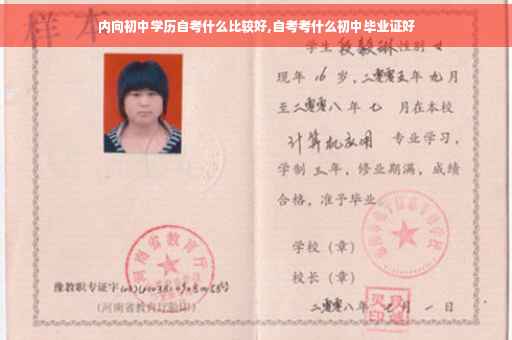 内向初中学历自考什么比较好,自考考什么初中毕业证好
样本
学生段毅琳性别女
现年16岁,二零零五年九月
至二零零八年七月在本校
计算机应用 专业学习,
学制三年,修业期满,成绩
合格,准予毕业
学校(章)
校长(章)
二零零八年七月一日
河南省教育厅
豫教职专证字
(河南省教育厅验印)